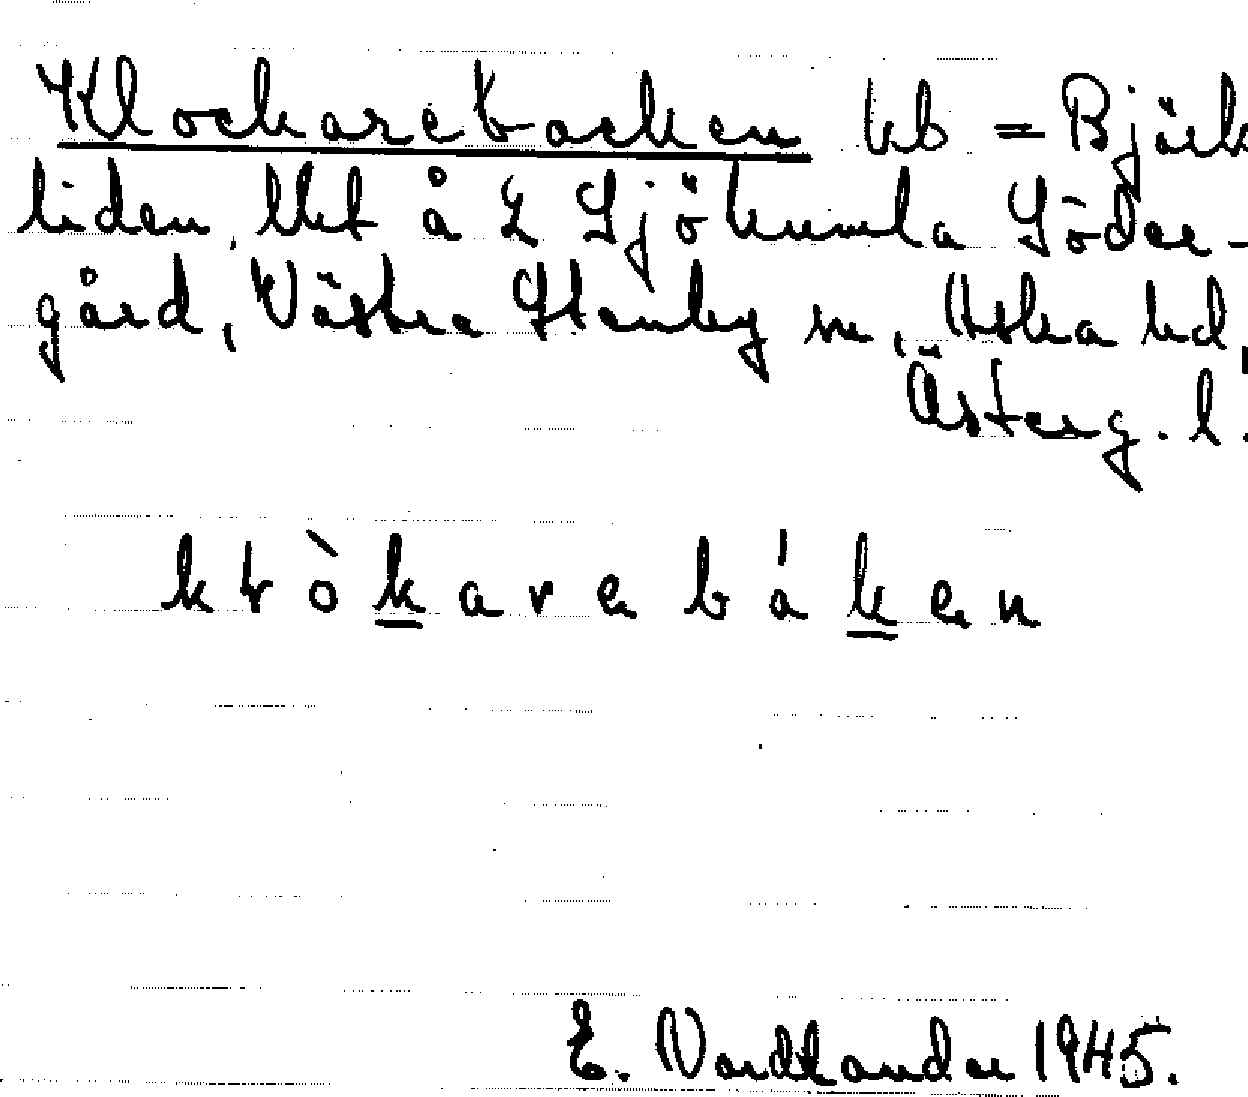 Klockarebacken kb = Björk
liden, lht å 2 Sjökumla Söder-
gård, Västra Stenby sn, Aska hd,
Österg. l.
klòkarebáken
E. Nordlander 1945.